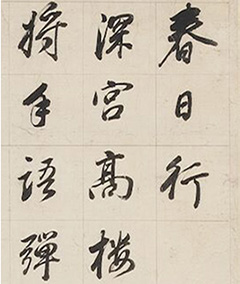 春日行
深宮高楼
将手語彈